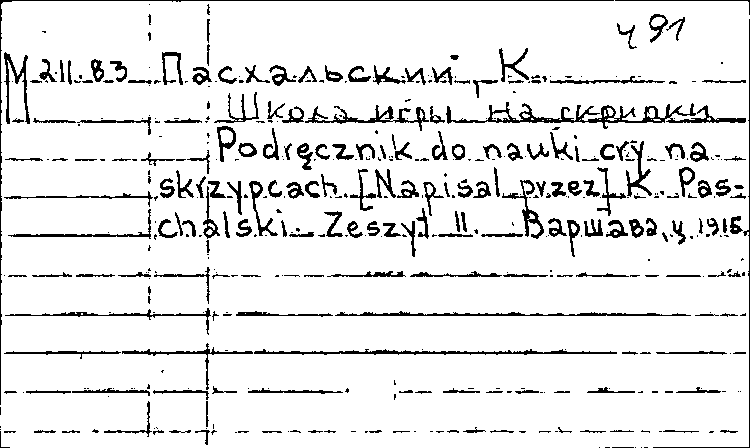 ч 91
М 211.83 Пасхальский, К.
Школа игры на скрипки
Podręcznik do nauki cry na
skrzypcach [Napisal przez] K. Pas-
chalski. Zeszyt II. Варшава, ц. 1915.